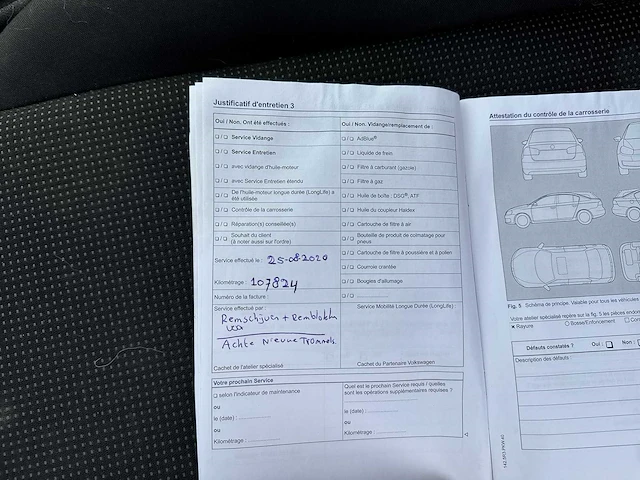 Justificatif d'entretien 3
Oui / Non, Ont été effectués :
❑ / ❑ Service Vidange
❑ / ❑ Service Entretien
❑ / ❑ avec vidange d'huile-moteur
❑ / ❑ avec Service Entretien étendu
❑ / ❑ De l'huile-moteur longue durée (LongLife) a été utilisée
❑ / ❑ Contrôle de la carrosserie
❑ / ❑ Réparation(s) conseillée(s)
❑ / ❑ Souhait du client
(à noter aussi sur l'ordre)
Service effectué le : 25-08-2020
Kilométrage : 107824
Numéro de la facture :
Service effectué par
Remschijven + Remblokken
Achte Nieuwe Trommels
Cachet de l'atelier spécialisé
Oui / Non, Vidange/remplacement de :
❑ / ❑ AdBlue®
❑ / ❑ Liquide de frein
❑ / ❑ Filtre à carburant (gazole)
❑ / ❑ Filtre à gaz
❑ / ❑ Huile de boîte : DSG®, ATF
❑ / ❑ Huile du coupleur Haldex
❑ / ❑ Cartouche de filtre à air
❑ / ❑ Bouteille de produit de colmatage pour pneus
❑ / ❑ Cartouche de filtre à poussière et à pollen
❑ / ❑ Courroie crantée
❑ / ❑ Bougies d'allumage
❑ / ❑
Service Mobilité Longue Durée (LongLife) :
Cachet du Partenaire Volkswagen
Votre prochain Service
❑ selon l'indicateur de maintenance
ou
le (date) :
ou
Kilométrage :
Quel est le prochain Service requis / quelles
sont les opérations supplémentaires requises ?
le (date) :
ou
Kilométrage :
Attestation du contrôle de la carrosserie
Fig. 5 Schéma de principe. Valable pour tous les véhicules
Votre atelier spécialisé repère sur la fig. 5 les pièces
× Rayure ○ Bosse/Enfoncement
Défauts constatés ? Oui : ❑ Non :
Description des défauts :